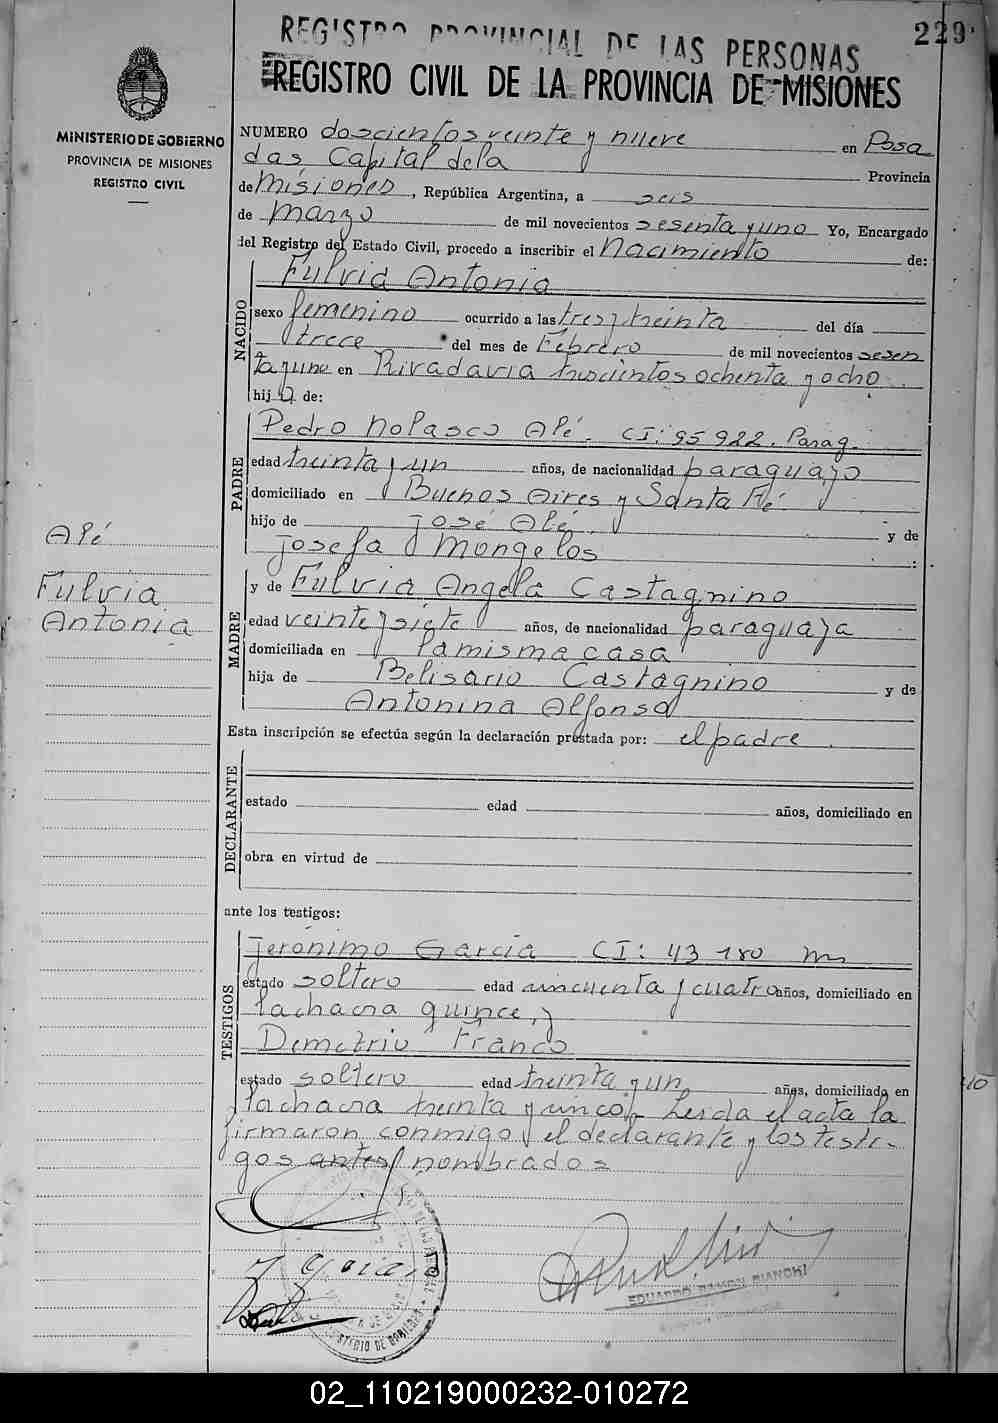 REGISTRO PROVINCIAL DE LAS PERSONAS
229
REGISTRO CIVIL DE LA PROVINCIA DE MISIONES
MINISTERIO DE GOBIERNO
PROVINCIA DE MISIONES
REGISTRO CIVIL
NUMERO doscientos veinte y nueve en Posa
das Capital dela Provincia
de Misiones, República Argentina, a seis
de marzo de mil novecientos sesenta y uno Yo, Encargado
del Registro del Estado Civil, procedo a inscribir el Nacimiento de:
NACIDO
Fulvia Antonia
sexo femenino ocurrido a las tres y treinta del día
trece del mes de Febrero de mil novecientos sesen
ta y uno en Rivadavia trescientos ochenta y ocho
hija de:
PADRE
Pedro Nolasco Alé. CI: 95922. Parag.
edad treinta y un años, de nacionalidad paraguayo
domiciliado en Buenos Aires y Santa Fé.
hijo de José Alé y de
Josefa Mongelos
Alé
Fulvia
Antonia
MADRE
y de Fulvia Angela Castagnino
edad veinte y siete años, de nacionalidad paraguaya
domiciliada en la misma casa
hija de Belisario Castagnino y de
Antonina Alfonso
Esta inscripción se efectúa según la declaración prestada por: el padre.
DECLARANTE
estado edad años, domiciliado en
obra en virtud de
ante los testigos:
TESTIGOS
Jerónimo Garcia CI: 43180
estado soltero edad cincuenta y cuatro años, domiciliado en
la chacra quince, y
Demetrio Franco
estado soltero edad treinta y un años, domiciliado en
la chacra treinta y cinco. Leida el acta la
firmaron conmigo el declarante y los testi-
gos antes nombrados
EDUARDO RAMON BIANCHI
MINISTERIO DE GOBIERNO
02_110219000232-010272